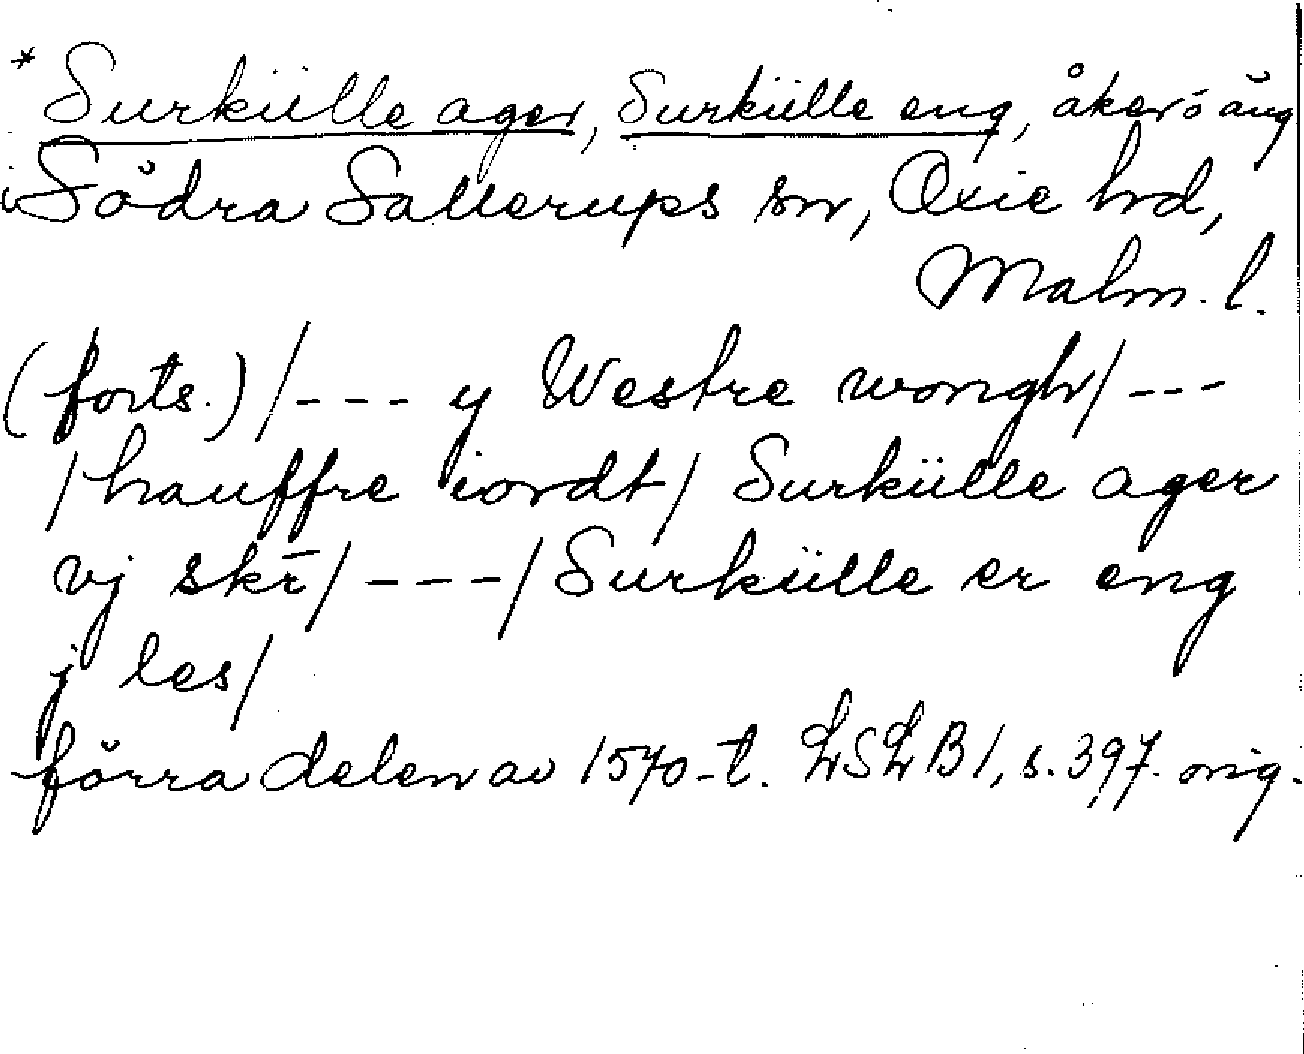 * Surkülle ager, Surkülle eng, åker o äng
i Södra Sallerups sn, Oxie hd,
Malm. l.
(forts.) /--- y Westre wongh/---
/hauffre iordt/ Surkülle ager
vj skr̄/----/Surkülle er eng
j les/
förra delen av 1570-t. LSLB1, s. 397. orig.